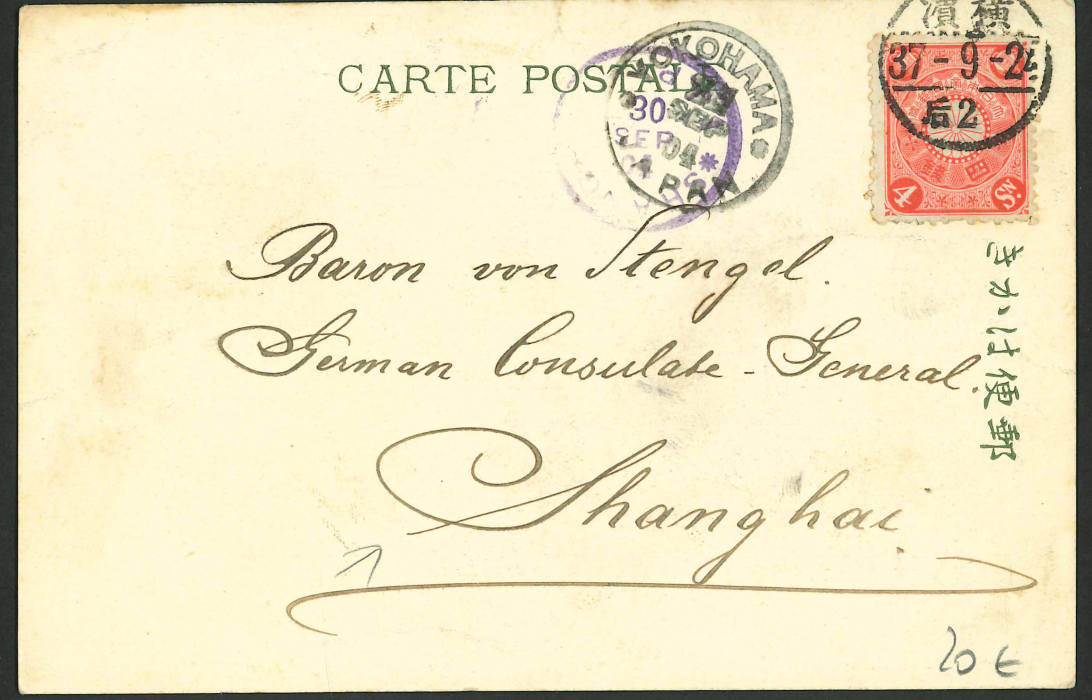 CARTE POSTALE
YOKOHAMA
SEP
04
30
SEP
04
横濱
37-9-2
后2
4 Sn.
きかは便郵
Baron von Stengel.
German Consulate-General.
Shanghai.
20 €